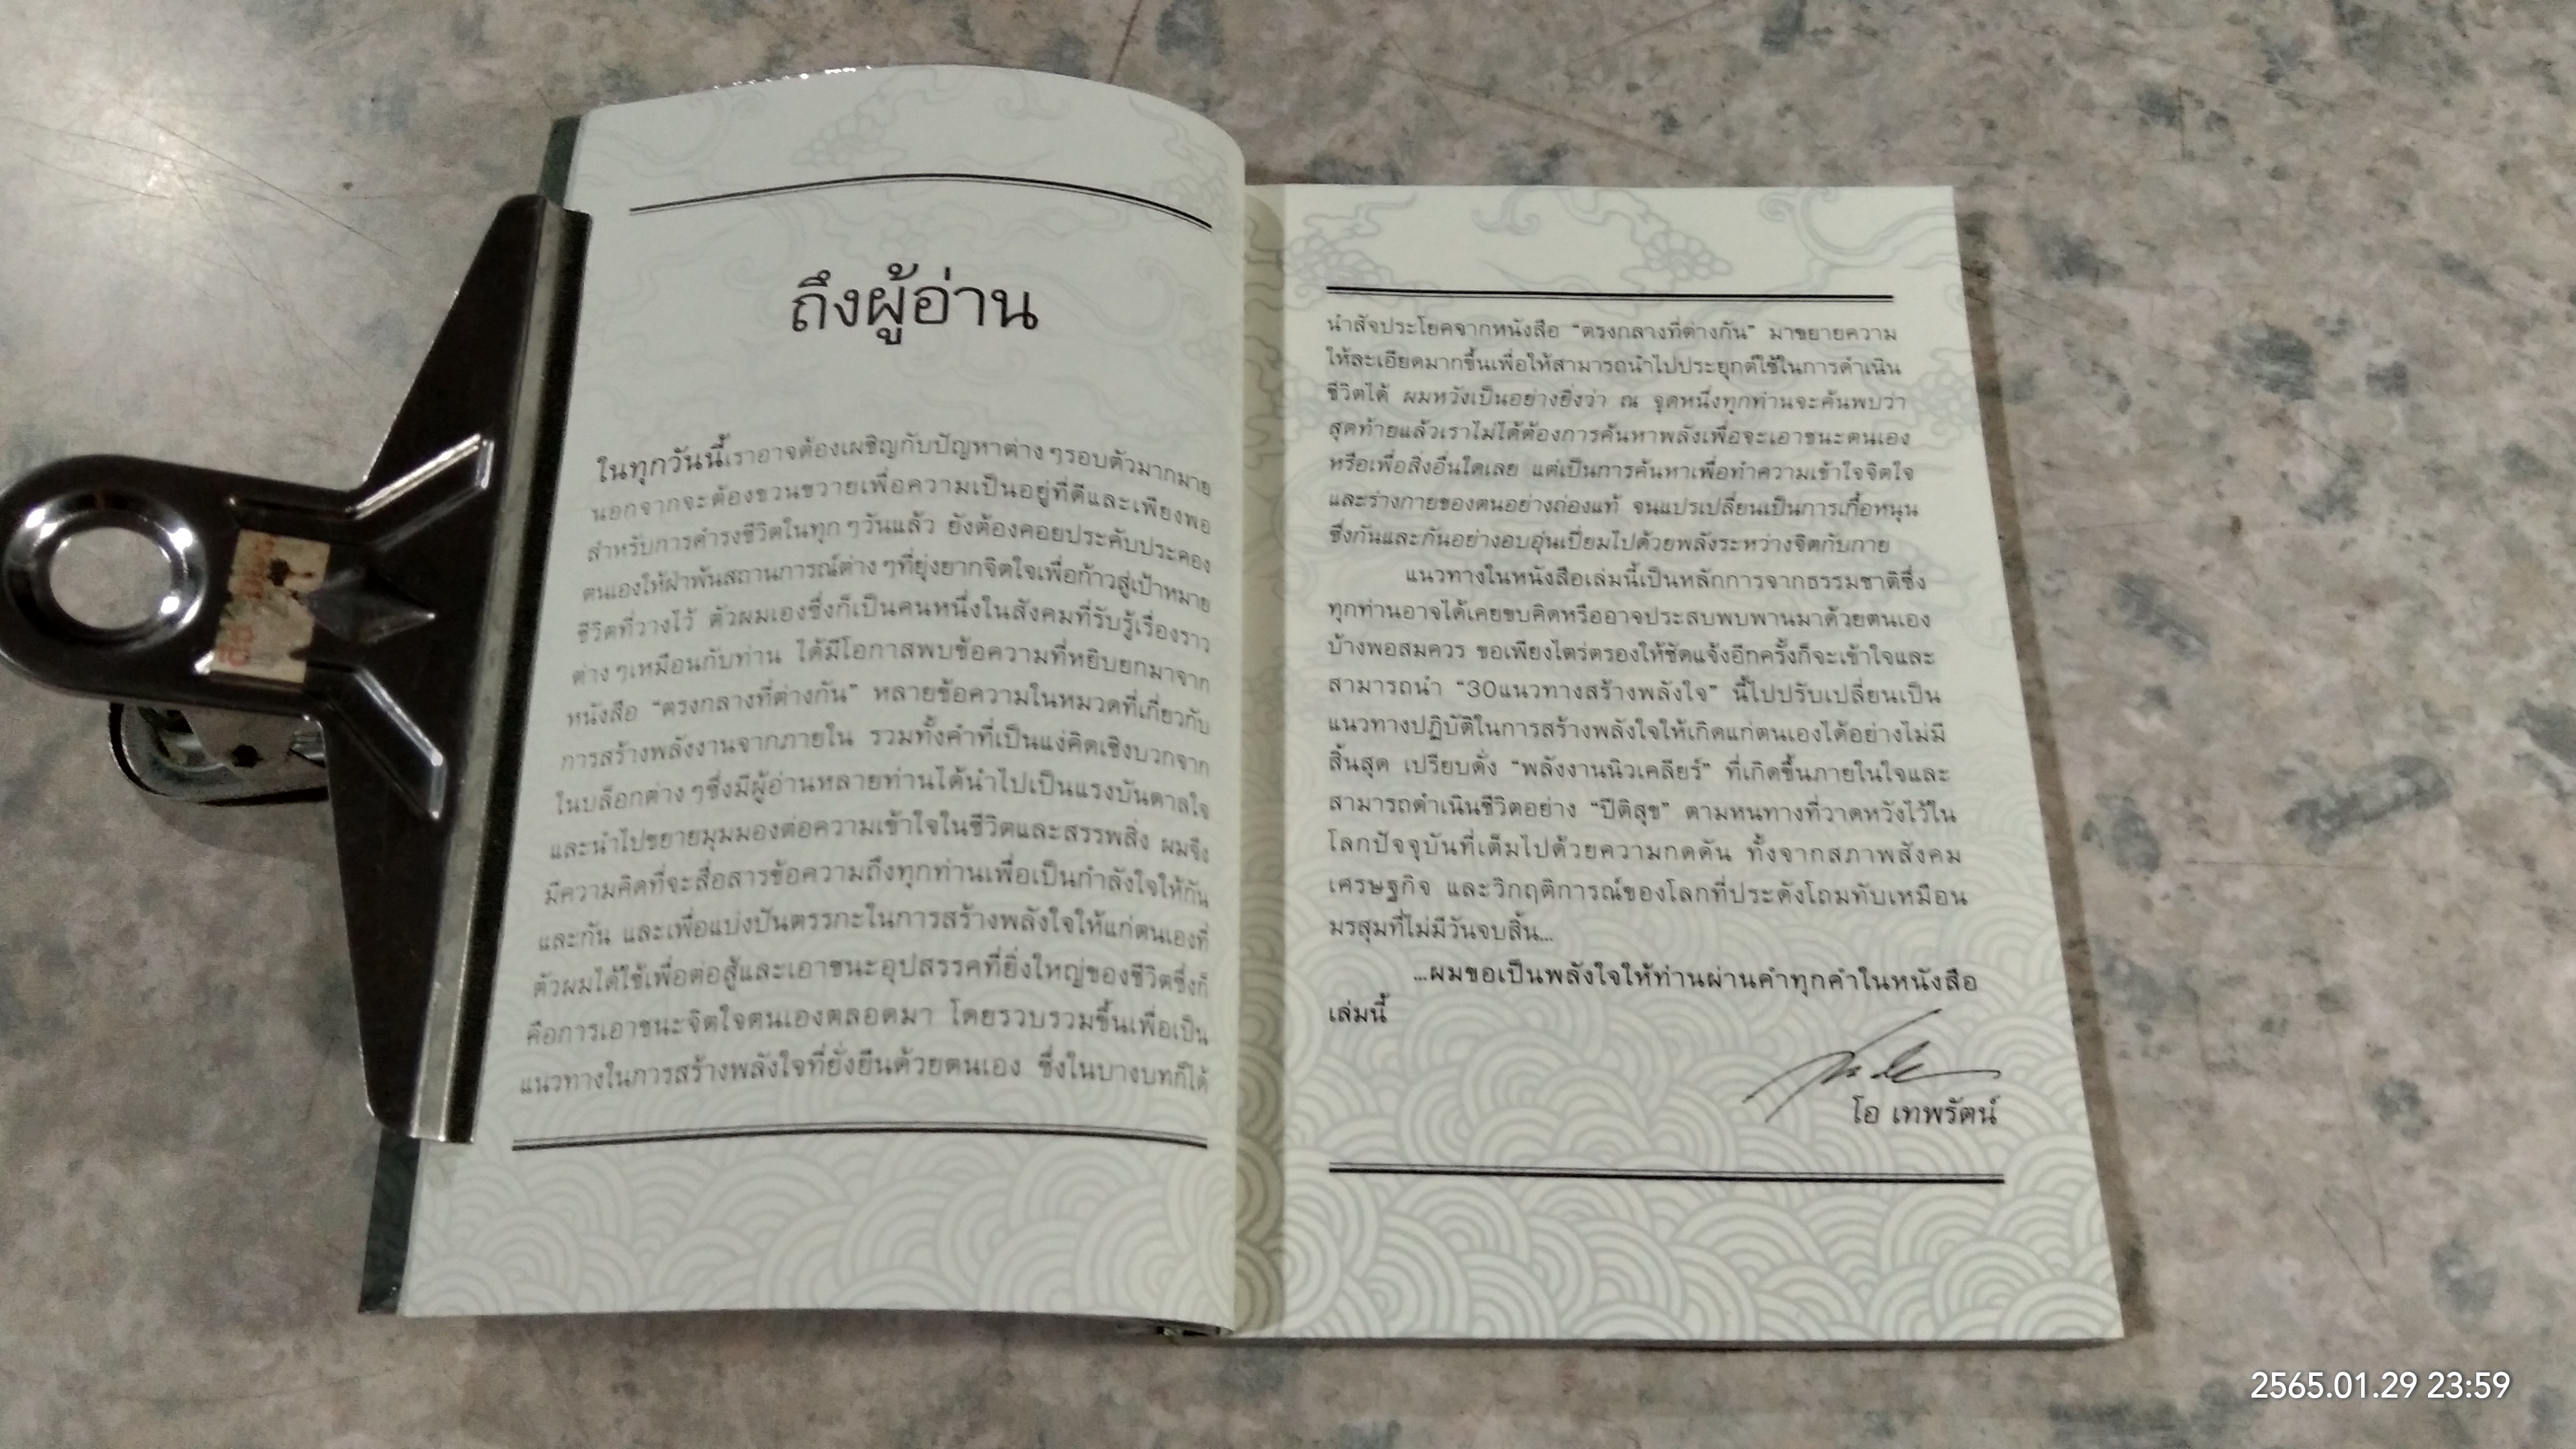 ถึงผู้อ่าน
ในทุกวันนี้เราอาจต้องเผชิญกับปัญหาต่าง ๆรอบตัวมากมาย
นอกจากจะต้องขวนขวายเพื่อความเป็นอยู่ที่ดีและเพียงพอ
สำหรับการดำรงชีวิตในทุก ๆวันแล้ว ยังต้องคอยประคับประคอง
ตนเองให้ฝ่าฟันสถานการณ์ต่าง ๆที่ยุ่งยากจิตใจเพื่อก้าวสู่เป้าหมาย
ชีวิตที่วางไว้ ตัวผมเองซึ่งก็เป็นคนหนึ่งในสังคมที่รับรู้เรื่องราว
ต่าง ๆเหมือนกับท่าน ได้มีโอกาสพบข้อความที่หยิบยกมาจาก
หนังสือ “ตรงกลางที่ต่างกัน” หลายข้อความในหมวดที่เกี่ยวกับ
การสร้างพลังงานจากภายใน รวมทั้งคำที่เป็นแง่คิดเชิงบวกจาก
ในบล็อกต่าง ๆซึ่งมีผู้อ่านหลายท่านได้นำไปเป็นแรงบันดาลใจ
และนำไปขยายมุมมองต่อความเข้าใจในชีวิตและสรรพสิ่ง ผมจึง
มีความคิดที่จะสื่อสารข้อความถึงทุกท่านเพื่อเป็นกำลังใจให้กัน
และกัน และเพื่อแบ่งปันตรรกะในการสร้างพลังใจให้แก่ตนเองที่
ตัวผมได้ใช้เพื่อต่อสู้และเอาชนะอุปสรรคที่ยิ่งใหญ่ของชีวิตซึ่งก็
คือการเอาชนะจิตใจตนเองตลอดมา โดยรวบรวมขึ้นเพื่อเป็น
แนวทางในการสร้างพลังใจที่ยั่งยืนด้วยตนเอง ซึ่งในบางบทก็ได้
นำสัจประโยคจากหนังสือ “ตรงกลางที่ต่างกัน” มาขยายความ
ให้ละเอียดมากขึ้นเพื่อให้สามารถนำไปประยุกต์ใช้ในการดำเนิน
ชีวิตได้ ผมหวังเป็นอย่างยิ่งว่า ณ จุดหนึ่งทุกท่านจะค้นพบว่า
สุดท้ายแล้วเราไม่ได้ต้องการค้นหาพลังเพื่อจะเอาชนะตนเอง
หรือเพื่อสิ่งอื่นใดเลย แต่เป็นการค้นหาเพื่อทำความเข้าใจจิตใจ
และร่างกายของตนอย่างถ่องแท้ จนแปรเปลี่ยนเป็นการเกื้อหนุน
ซึ่งกันและกันอย่างอบอุ่นเปี่ยมไปด้วยพลังระหว่างจิตกับกาย
แนวทางในหนังสือเล่มนี้เป็นหลักการจากธรรมชาติซึ่ง
ทุกท่านอาจได้เคยขบคิดหรืออาจประสบพบพานมาด้วยตนเอง
บ้างพอสมควร ขอเพียงไตร่ตรองให้ชัดแจ้งอีกครั้งก็จะเข้าใจและ
สามารถนำ “30แนวทางสร้างพลังใจ” นี้ไปปรับเปลี่ยนเป็น
แนวทางปฏิบัติในการสร้างพลังใจให้เกิดแก่ตนเองได้อย่างไม่มี
สิ้นสุด เปรียบดั่ง “พลังงานนิวเคลียร์” ที่เกิดขึ้นภายในใจและ
สามารถดำเนินชีวิตอย่าง “ปีติสุข” ตามหนทางที่วาดหวังไว้ใน
โลกปัจจุบันที่เต็มไปด้วยความกดดัน ทั้งจากสภาพสังคม
เศรษฐกิจ และวิกฤติการณ์ของโลกที่ประดังโถมทับเหมือน
มรสุมที่ไม่มีวันจบสิ้น...
...ผมขอเป็นพลังใจให้ท่านผ่านคำทุกคำในหนังสือ
เล่มนี้
โอ เทพรัตน์
2565.01.29 23:59